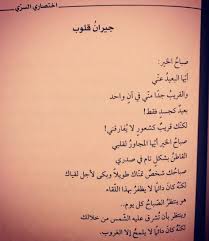 اختصاري السري
جيرانُ قلوب
صباحُ الخير:
أيّها البعيدُ عنّي
والقريبُ جدًا منّي في آنٍ واحد
بعيدٌ كجسد فقط!
لكنّك قريبٌ كشعورٍ لا يُفارقني!
صباحُ الخير أيّها المجاورُ لقلبي
القاطنُ بشكلٍ تام في صدري
صباحُك شخصٌ تمنّاك طويلًا وبكى لأجل لقياك
لكنّه كان دائمًا لا يظفرُ بهذا اللقاء
هو ينتظرُ الصّباحَ كل يوم..
وينتظر بأن تُشرق عليه الشّمس من خلالك
لكنّه كان دائمًا لا يلمحُ إلا الغروب.